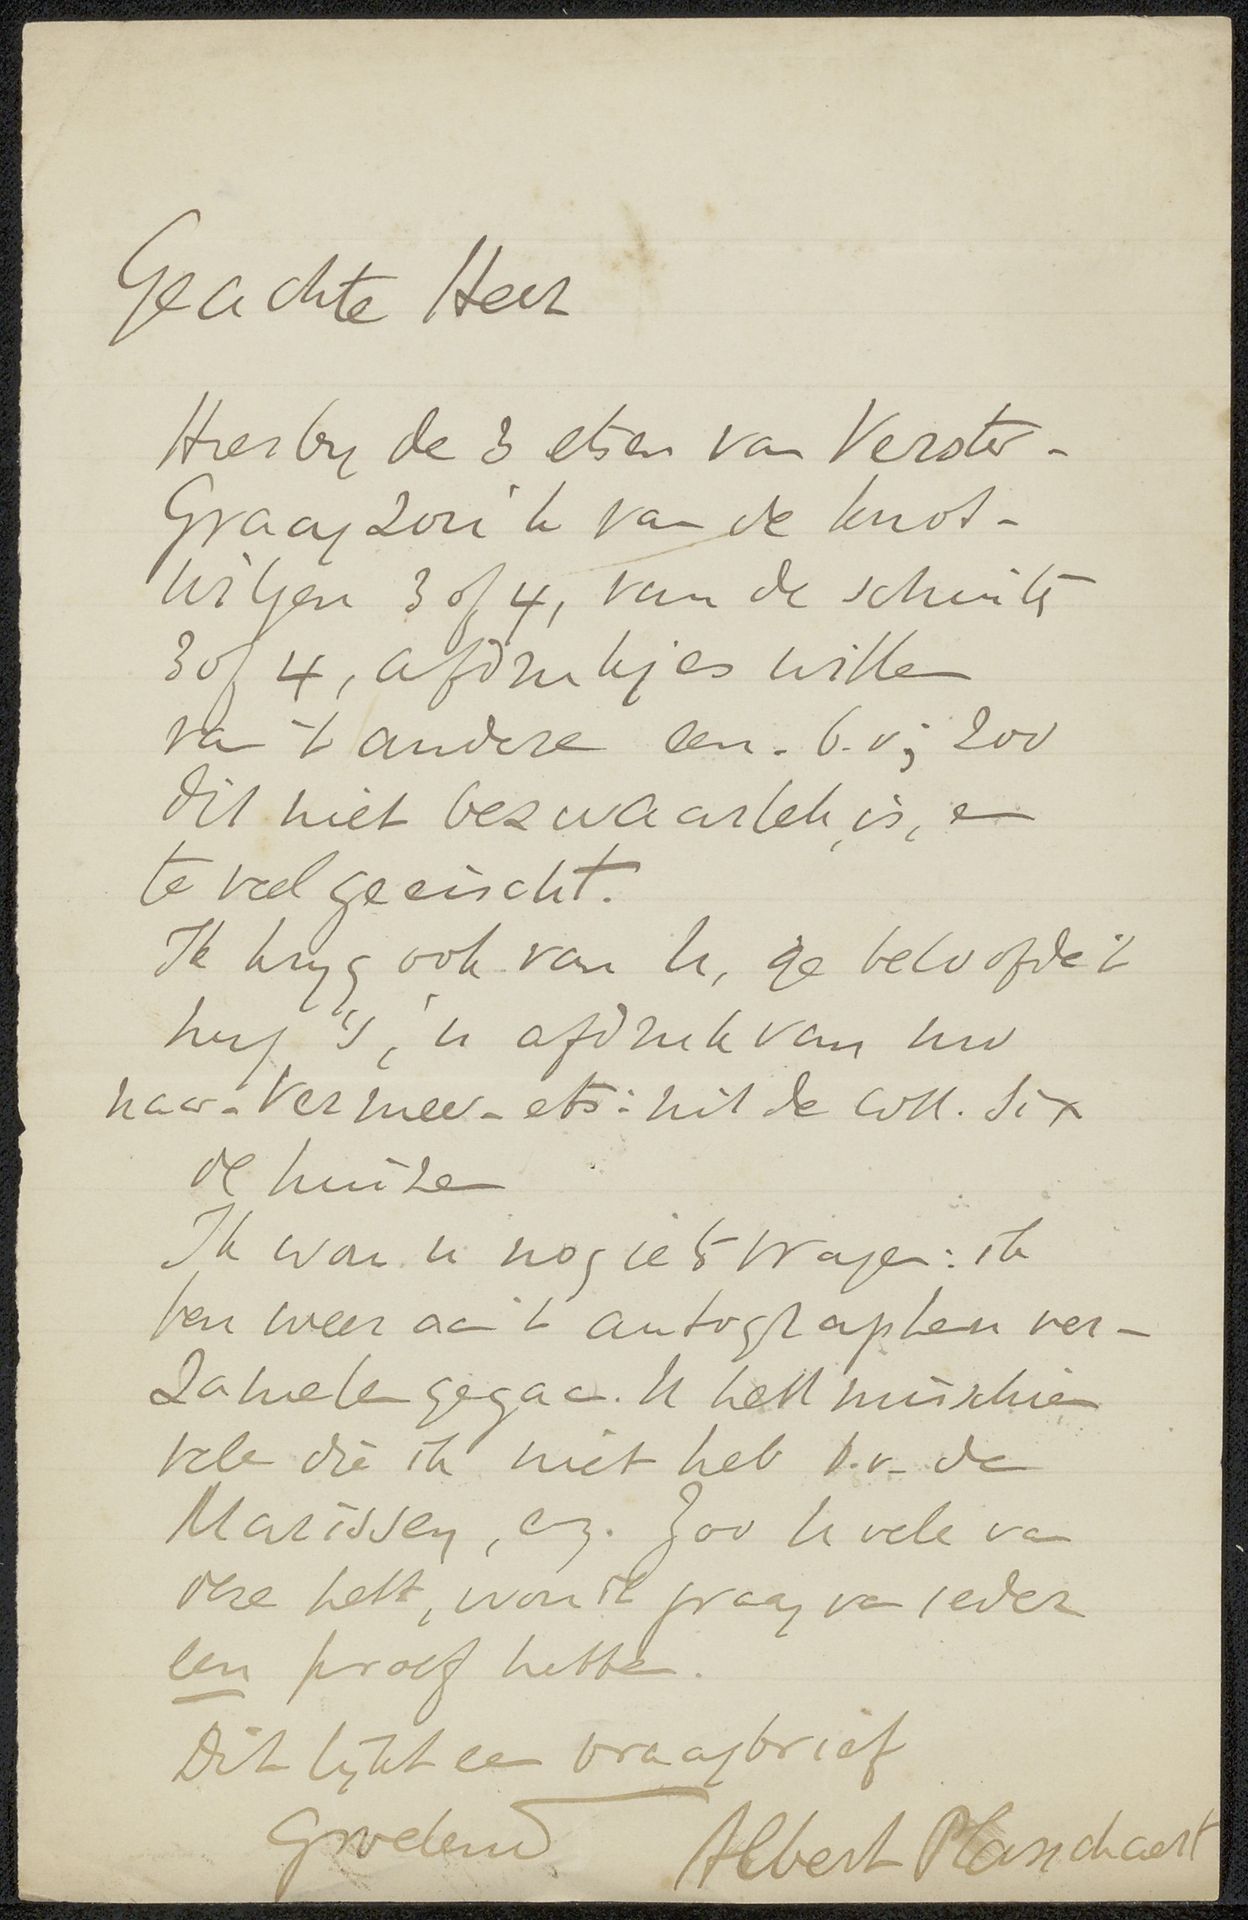 Geachte Heer
Hierby de 3 etsen van Verster -
Graag zou ik van de knot-
wilgen 3 of 4, van de schuits
3 of 4, afdrukjes willen
van 't andere een. b.v; zoo
dit niet bezwaarlek, is, en
te veel geeischt.
Ik kryg ook van U, ge beloofde 't
'n afdruk van uw
naar-Vermeer-ets: uit de coll. Six
de huize
Ik wou u nog iets vragen: ik
ben weer aan 't autographen ver-
zamelen gegaan. U hebt misschien
vele die ik niet heb b.v. de
Marissen, enz. Zoo U vele van
deze hebt, wou ik graag van ieder
een proef hebben.
Dit lykt een vraagbrief
Groetend Albert Plasschaert